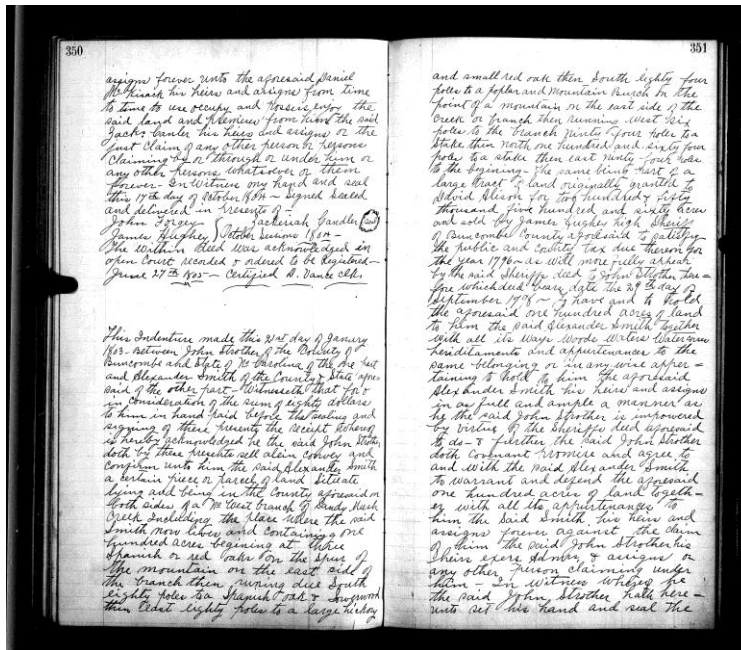 350
assigns forever unto the aforesaid Daniel
McKisack his heirs and assigns from time
to time to use occupy and possess enjoy the
said land and premises from him the said
Jack: Canler his heirs and assigns or the
just Claim of any other person or persons
Claiming by or through or under him or
any other persons whatsoever or them
forever - In Witness my hand and seal
this 17th day of October 1804 - Signed Sealed
and delivered in presents of -
John Forgey Jackeriah Candler Seal
James Hughey October Sessions 1804 -
The within deed was acknowledged in
open Court recorded & ordered to be Registered -
June 27th 1805 - Certified D. Vance Clk.
This Indenture made this 21st day of January
1803 - Between John Strother of the County of
Buncombe and State of No Carolina of the one part
and Alexander Smith of the County & State afore
said of the other part - Witnesseth that for &
in Consideration of the sum of eighty dollars
to him in hand paid before the sealing and
signing of these presents the receipt whereof
is hereby acknowledged he the said John Strother
doth by these presents sell alein convey and
confirm unto him the said Alexander Smith
a certain piece or parcel of land Situate
lying and being in the County aforesaid on
both sides of a West branch of Sandy Mush
Creek Including the place where the said
Smith now lives and Containing one
hundred acres begining at three
Spanish or red oaks on the Spur of
the mountain on the east side of
the branch then runing due South
eighty poles to a Spanish oak & Sowerwood
then East eighty poles to a large hickory
351
and small red oak then South eighty four
poles to a poplar and Mountain Burch on the
point of a mountain on the east side of the
creek or branch then running west six
poles to the branch ninty four poles to a
Stake then North one hundred and sixty four
poles to a stake then east ninty-four poles
to the begening - the same being part of a
large tract of land originally granted to
David Alison for two hundred & fifty
thousand five hundred and sixty acres
and sold by James Hughey high Sheriff
of Buncombe County aforesaid to satisfy
the public and County tax due thereon for
the year 1796 - as will more fully appear
by the said Sheriffs deed to John Strother there =
fore which deed bears date the 29th day of
September 1798 - To have and to hold
the aforesaid one hundred acres of land
to him the said Alexander Smith together
with all its ways Woods Waters Watercourses
heriditaments and appertenances to the
same belonging or in any wise apper =
taining to hold to him the aforesaid
Alexander Smith his heirs and assigns
in as full and ample a manner as
he the said John Strother is impowered
by virtue of the Sheriffs deed aforesaid
to do - & further the said John Strother
doth Covenant promise and agree to
and with the said Alexander Smith
to warrant and defend the aforesaid
one hundred acres of land togeth-
er with all its appurtenances to
him the said Smith, his heirs and
assigns forever against the claim
of him the said John Strother his
heirs exers Admrs & assigns or
any other person claiming under
him - In Witness whereof he
the said John Strother hath here =
unto set his hand and seal the